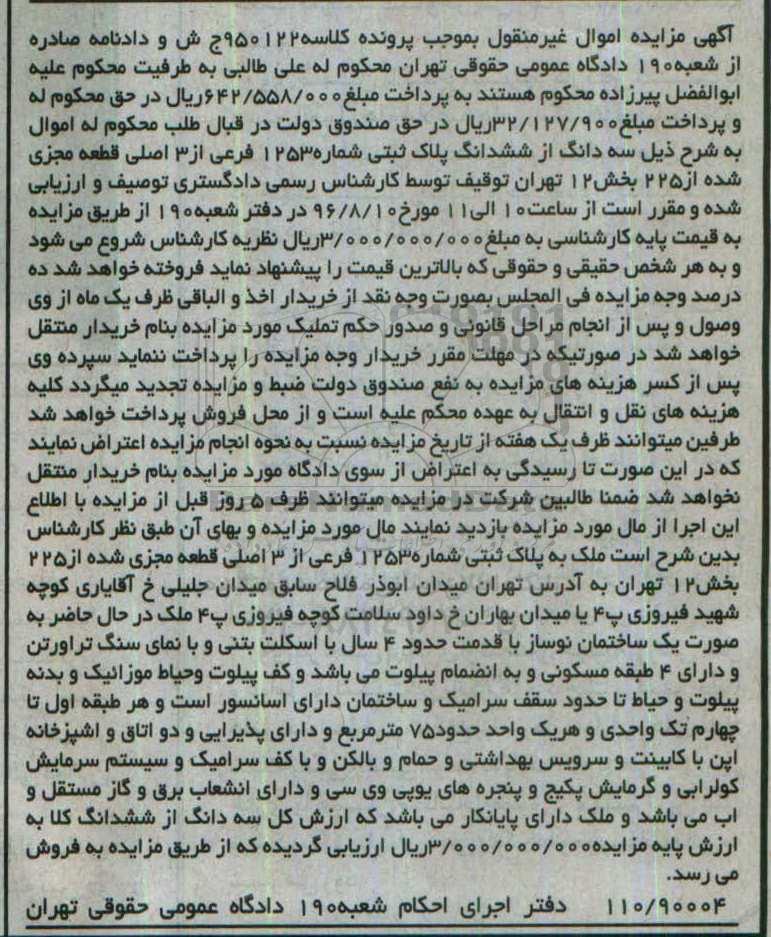 آگهی مزایده اموال غیرمنقول بموجب پرونده کلاسه۹۵۰۱۲۲ج ش و دادنامه صادره
از شعبه۱۹۰ دادگاه عمومی حقوقی تهران محکوم له علی طالبی به طرفیت محکوم علیه
ابوالفضل پیرزاده محکوم هستند به پرداخت مبلغ۶۴۲/۵۵۸/۰۰۰ریال در حق محکوم له
و پرداخت مبلغ۳۲/۱۲۷/۹۰۰ریال در حق صندوق دولت در قبال طلب محکوم له اموال
به شرح ذیل سه دانگ از ششدانگ پلاک ثبتی شماره۱۲۵۳ فرعی از۳ اصلی قطعه مجزی
شده از۲۲۵ بخش۱۲ تهران توقیف توسط کارشناس رسمی دادگستری توصیف و ارزیابی
شده و مقرر است از ساعت۱۰ الی۱۱ مورخ۹۶/۸/۱۰ در دفتر شعبه۱۹۰ از طریق مزایده
به قیمت پایه کارشناسی به مبلغ۳/۰۰۰/۰۰۰/۰۰۰ریال نظریه کارشناس شروع می شود
و به هر شخص حقیقی و حقوقی که بالاترین قیمت را پیشنهاد نماید فروخته خواهد شد ده
درصد وجه مزایده فی المجلس بصورت وجه نقد از خریدار اخذ و الباقی ظرف یک ماه از وی
وصول و پس از انجام مراحل قانونی و صدور حکم تملیک مورد مزایده بنام خریدار منتقل
خواهد شد در صورتیکه در مهلت مقرر خریدار وجه مزایده را پرداخت ننماید سپرده وی
پس از کسر هزینه های مزایده به نفع صندوق دولت ضبط و مزایده تجدید میگردد کلیه
هزینه های نقل و انتقال به عهده محکم علیه است و از محل فروش پرداخت خواهد شد
طرفین میتوانند ظرف یک هفته از تاریخ مزایده نسبت به نحوه انجام مزایده اعتراض نمایند
که در این صورت تا رسیدگی به اعتراض از سوی دادگاه مورد مزایده بنام خریدار منتقل
نخواهد شد ضمنا طالبین شرکت در مزایده میتوانند ظرف ۵ روز قبل از مزایده با اطلاع
این اجرا از مال مورد مزایده بازدید نمایند مال مورد مزایده و بهای آن طبق نظر کارشناس
بدین شرح است ملک به پلاک ثبتی شماره۱۲۵۳ فرعی از ۳ اصلی قطعه مجزی شده از۲۲۵
بخش۱۲ تهران به آدرس تهران میدان ابوذر فلاح سابق میدان جلیلی خ آقایاری کوچه
شهید فیروزی پ۴ یا میدان بهاران خ داود سلامت کوچه فیروزی پ۴ ملک در حال حاضر به
صورت یک ساختمان نوساز با قدمت حدود ۴ سال با اسکلت بتنی و با نمای سنگ تراورتن
و دارای ۴ طبقه مسکونی و به انضمام پیلوت می باشد و کف پیلوت وحیاط موزائیک و بدنه
پیلوت و حیاط تا حدود سقف سرامیک و ساختمان دارای اسانسور است و هر طبقه اول تا
چهارم تک واحدی و هریک واحد حدود۷۵ مترمربع و دارای پذیرایی و دو اتاق و اشپزخانه
اپن با کابینت و سرویس بهداشتی و حمام و بالکن و با کف سرامیک و سیستم سرمایش
کولرابی و گرمایش پکیج و پنجره های یوپی وی سی و دارای انشعاب برق و گاز مستقل و
اب می باشد و ملک دارای پایانکار می باشد که ارزش کل سه دانگ از ششدانگ کلا به
ارزش پایه مزایده۳/۰۰۰/۰۰۰/۰۰۰ریال ارزیابی گردیده که از طریق مزایده به فروش
می رسد.
۱۱۰/۹۰۰۰۴ دفتر اجرای احکام شعبه۱۹۰ دادگاه عمومی حقوقی تهران